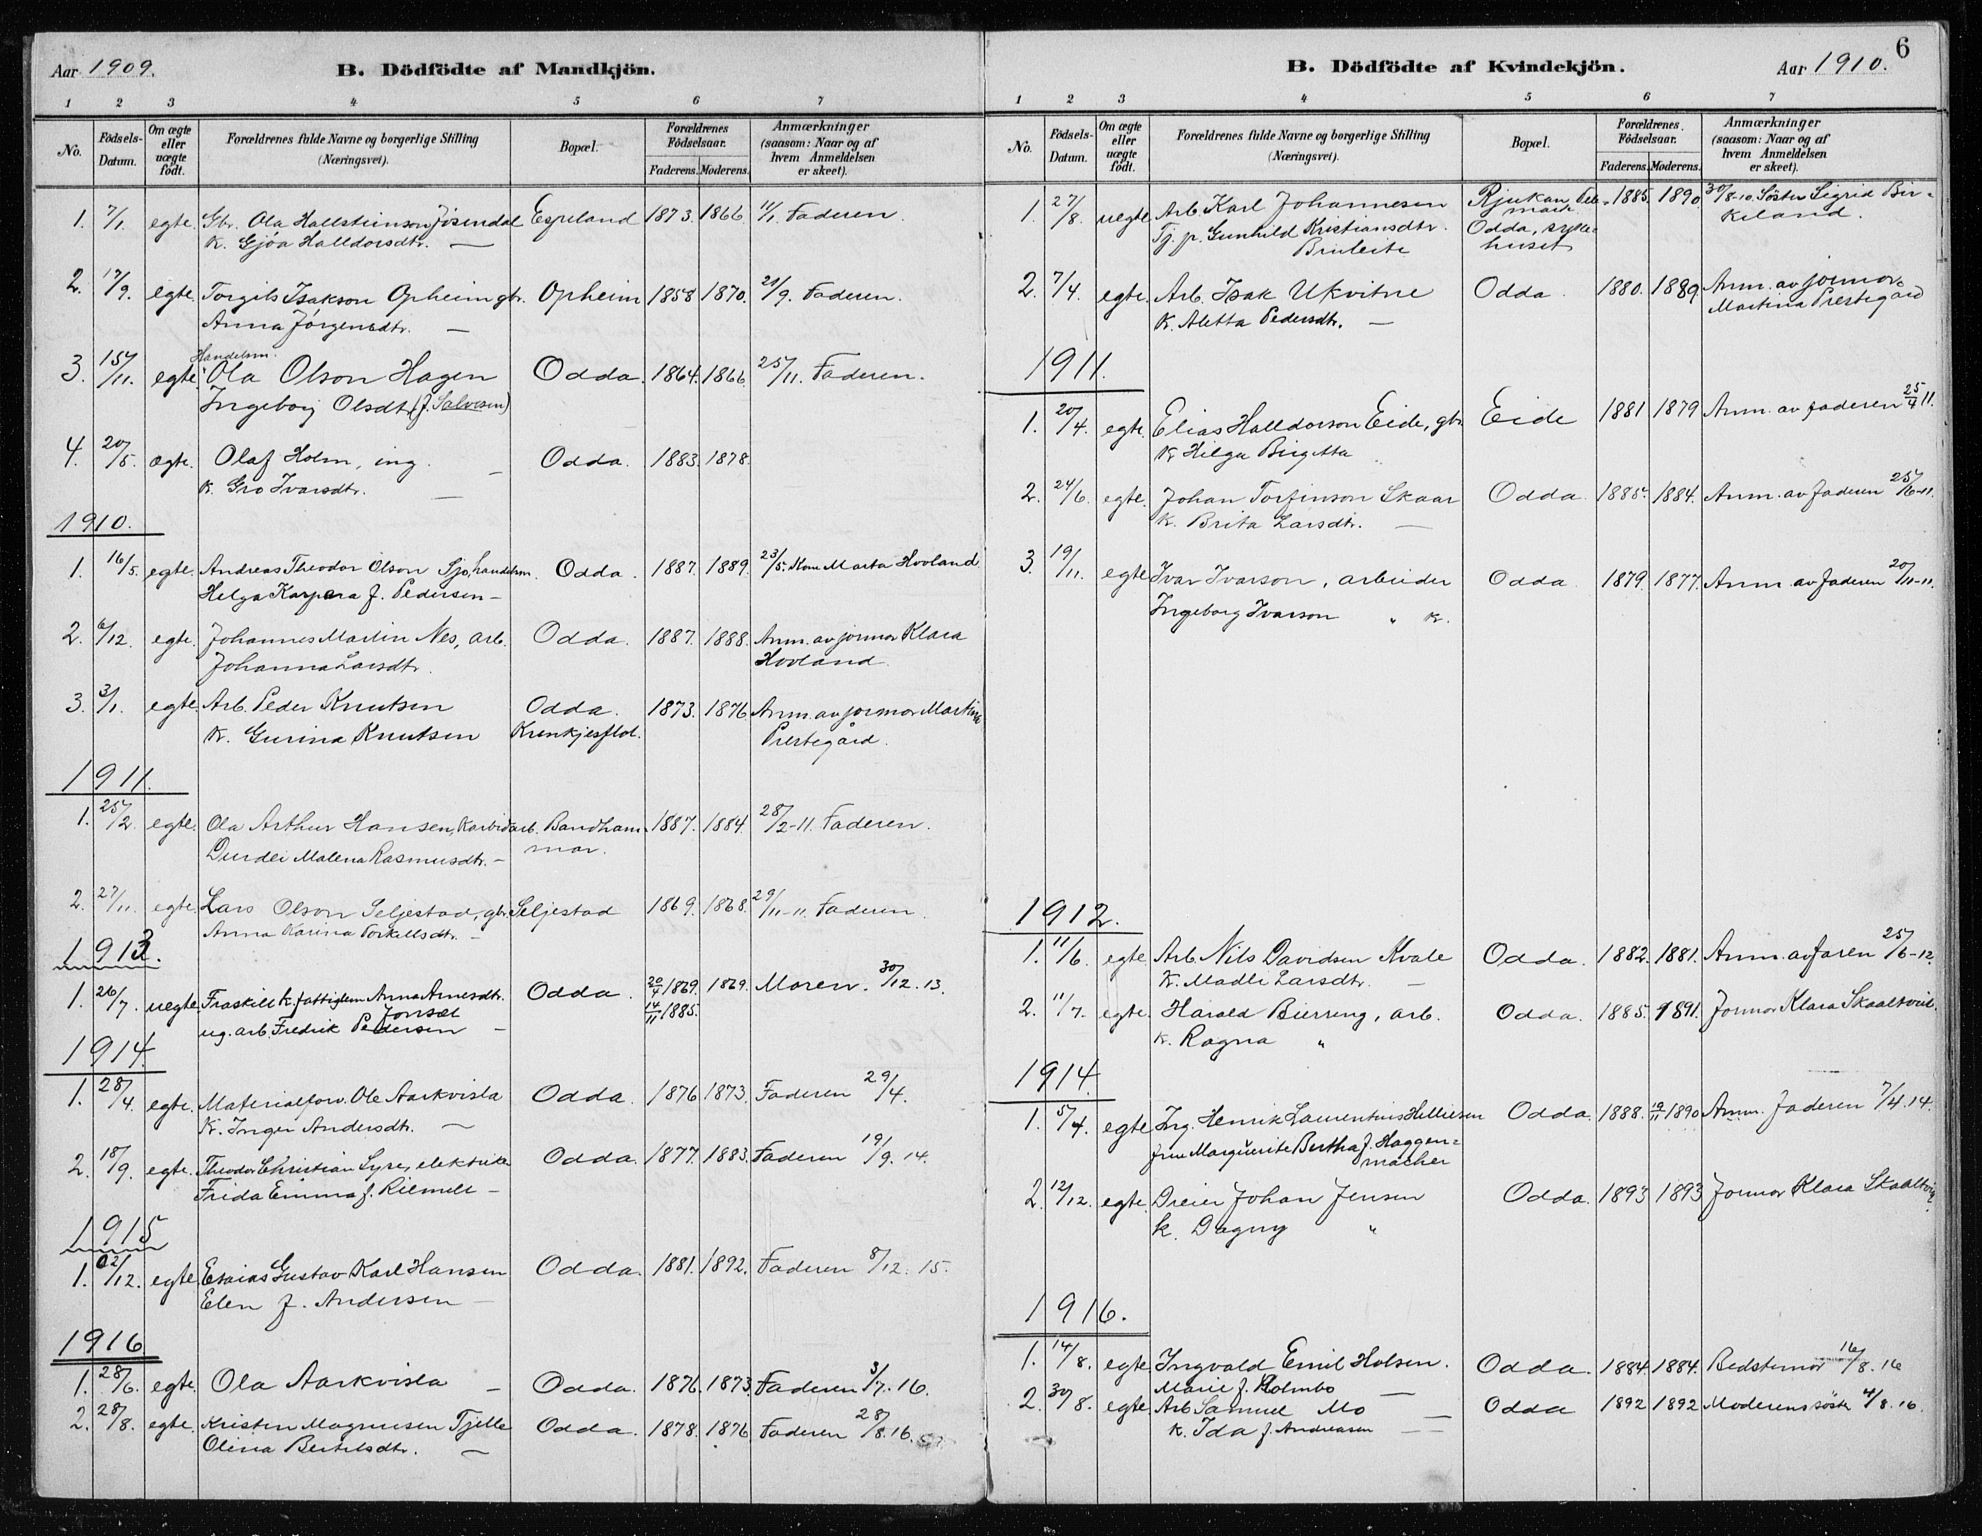 Aar 1909.
B. Dödfödte af Mandkjön.
1 2 3 4 5 6 7
No. Födsels-Datum. Om ægte eller uægte födt. Forældrenes fulde Navne og borgerlige Stilling (Næringsvei). Bopæl. Forældrenes Födselsaar. Faderens. Moderens. Anmærkninger (saasom: Naar og af hvem Anmeldelsen er skeet).
1. 7/1 egte. Gbr. Ola Hallsteinson Jösendal Espeland 1873. 1866 11/1 Faderen.
K. Gjöa Halldorsdtr. —
2. 17/9. egte. Torgils Isakson Opheim gbr. Opheim 1858 1870. 21/9. Faderen.
Anna Jörgensdtr. —
Handelsm.
3. 15/11. egte. Ola Olson Hagen Odda. 1864. 1866. 25/11. Faderen.
Ingeborg Olsdtr. (f. Salvesen)
4. 20/5. ægte. Olaf Holm, ing. — Odda. 1883. 1878.
K. Gro Ivarsdtr. —
1910.
1. 16/5. egte. Andreas Theodor Olson Sjo, handelsm. Odda. 1887. 1889. 23/5. Kone Marta Hovland.
Helga Kaspara f. Pedersen —
2. 6/12. egte. Johannes Martin Nes, arb. Odda. 1887. 1888. Anm. av jormor Klara
Johanna Larsdtr. Hovland.
3. 3/1. egte. Arb. Peder Knutsen Odda. 1873. 1876 Anm. av jormor Martina
K. Gurina Knutsen Prestegård.
1911.
1. 25/2. egte. Ola Arthur Hansen, Karbidarb. Bandham- 1887. 1884. 28/2-11. Faderen.
Durdei Malena Rasmusdtr. — mar.
2. 27/11. egte. Lars Olson Seljestad, gbr. Seljestad 1869. 1868. 29/11-11. Faderen.
Anna Karina Torkellsdtr. —
1913.
1. 26/7. uegte. Fraskilt k. fattiglem Anna Arnesdtr. Odda. 22/4 1869. 1869. Moren. 30/12. 13.
Jonsæt 14/11 1885.
ug. arb. Fredrik Pedersen —
1914.
1. 28/4. egte. Materialforv. Ole Aarkvisla Odda. 1876 1873. Faderen 29/4.
K. Inger Andersdtr. —
2. 18/9. egte. Theodor Christian Syre, elektriker Odda. 1877. 1883. Faderen 19/9. 14.
Frida Emma f. —
1915
1. 02/12. egte. Esaias Gustav Karl Hansen Odda. 1881. 1892. Faderen 8/12. 15.
Elen f. Andersen —
1916
1. 28/6. egte. Ola Aarkvisla — Odda. 1876. 1873. Faderen 3/7. 16.
2. 28/8. egte. Kristen Magnusen Tjelle Odda. 1878. 1876 Faderen 28/8. 16.
Olina Bertelsdtr. —
6
B. Dödfödte af Kvindekjön.
Aar 1910.
1 2 3 4 5 6 7
No. Födsels-Datum. Om ægte eller uægte födt. Forældrenes fulde Navne og borgerlige Stilling (Næringsvei). Bopæl. Forældrenes Födselsaar. Faderens. Moderens. Anmærkninger (saasom: Naar og af hvem Anmeldelsen er skeet).
1. 27/8. uegte Arb. Karl Johannesen Rjukan Tele- 1885. 1890. 30/8-10. Söster Sigrid Bir-
mark keland.
Tj. p. Gunhild Kristiansdtr. Odda, syke-
Bruleite huset
2. 7/4. egte. Arb. Isak Ukvitne Odda. 1880. 1889 Anm. av jormor
K. Aletta Pedersdtr. — Martina Prestegård
1911.
1. 20/4. egte. Elias Halldorson Eide, gbr. Eide 1881 1879 Anm. av faderen 25/4 11.
K. Helga Birgitta
2. 24/6. egte. Johan Torfinson Skaar Odda. 1885. 1884. Anm. av faderen 25/6-11.
K. Brita Larsdtr. —
3. 19/11. egte Ivar Ivarson, arbeider Odda. 1879. 1877. Anm. av faderen 20/11-11.
Ingeborg Ivarson „ K.
1912.
1. 11/6. egte. Arb. Nils Davidsen Kvale Odda. 1882. 1881. Anm. av faren 25/6-12.
K. Madli Larsdtr. —
2. 11/7. egte. Harald Bierring, arb. Odda. 1885. 1891. Jormor Klara Skaaltveit.
K. Ragna „
1914.
1. 5/4. egte Ing. Henrik Laurentius Helliesen Odda. 1888. 19/11 1890 Anm. Faderen 7/4. 14.
fru Marguerite Bertha f. Haggen-
macher
2. 12/12. egte. Dreier Johan Jensen Odda. 1893 1893 Jormor Klara Skaaltveit.
k. Dagny „
1916.
1. 14/8. egte Ingvald Emil Holsen. Odda. 1884. 1884. Bedstemor 16/8. 16
Marie f. Holmbo —
2. 30/8. egte Arb. Samuel Mo — Odda 1892 1892 Moderens söster 4/8. 16.
K. Ida f. Andreasen — —